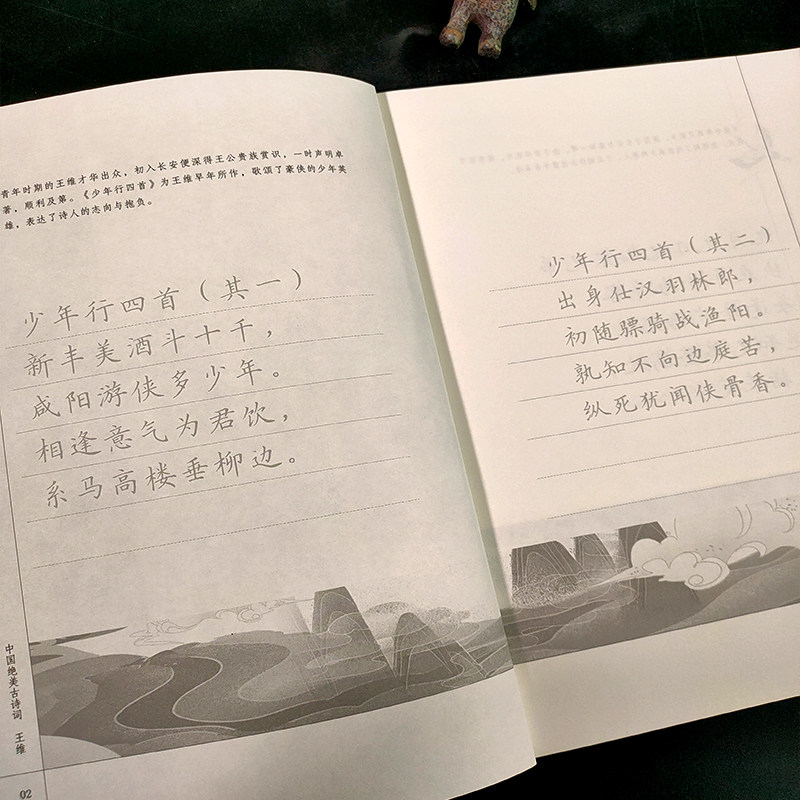 青年时期的王维才华出众，初入长安便深得王公贵族赏识，一时声明卓
著，顺利及第。《少年行四首》为王维早年所作，歌颂了豪侠的少年英
雄，表达了诗人的志向与抱负。
少年行四首（其一）
新丰美酒斗十千，
咸阳游侠多少年。
相逢意气为君饮，
系马高楼垂柳边。
中国绝美古诗词 王维
02
少年行四首（其二）
出身仕汉羽林郎，
初随骠骑战渔阳。
孰知不向边庭苦，
纵死犹闻侠骨香。